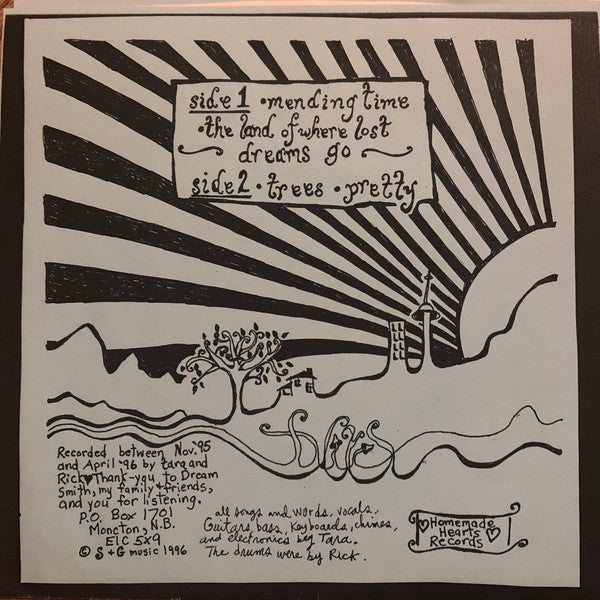 side 1 • mending time
• the land of where lost
dreams go
side 2 • trees • pretty
Recorded between Nov. '95
and April '96 by tara and
Rick ♥ Thank-you to Dream
Smith, my family + friends,
and you for listening.
P.O. Box 1701
Moncton, N.B.
E1C 5X9
© S + G music 1996
all songs and words, vocals,
Guitars, bass, Keyboards, chimes,
and electronics by Tara.
The drums were by Rick.
Homemade
Hearts
Records